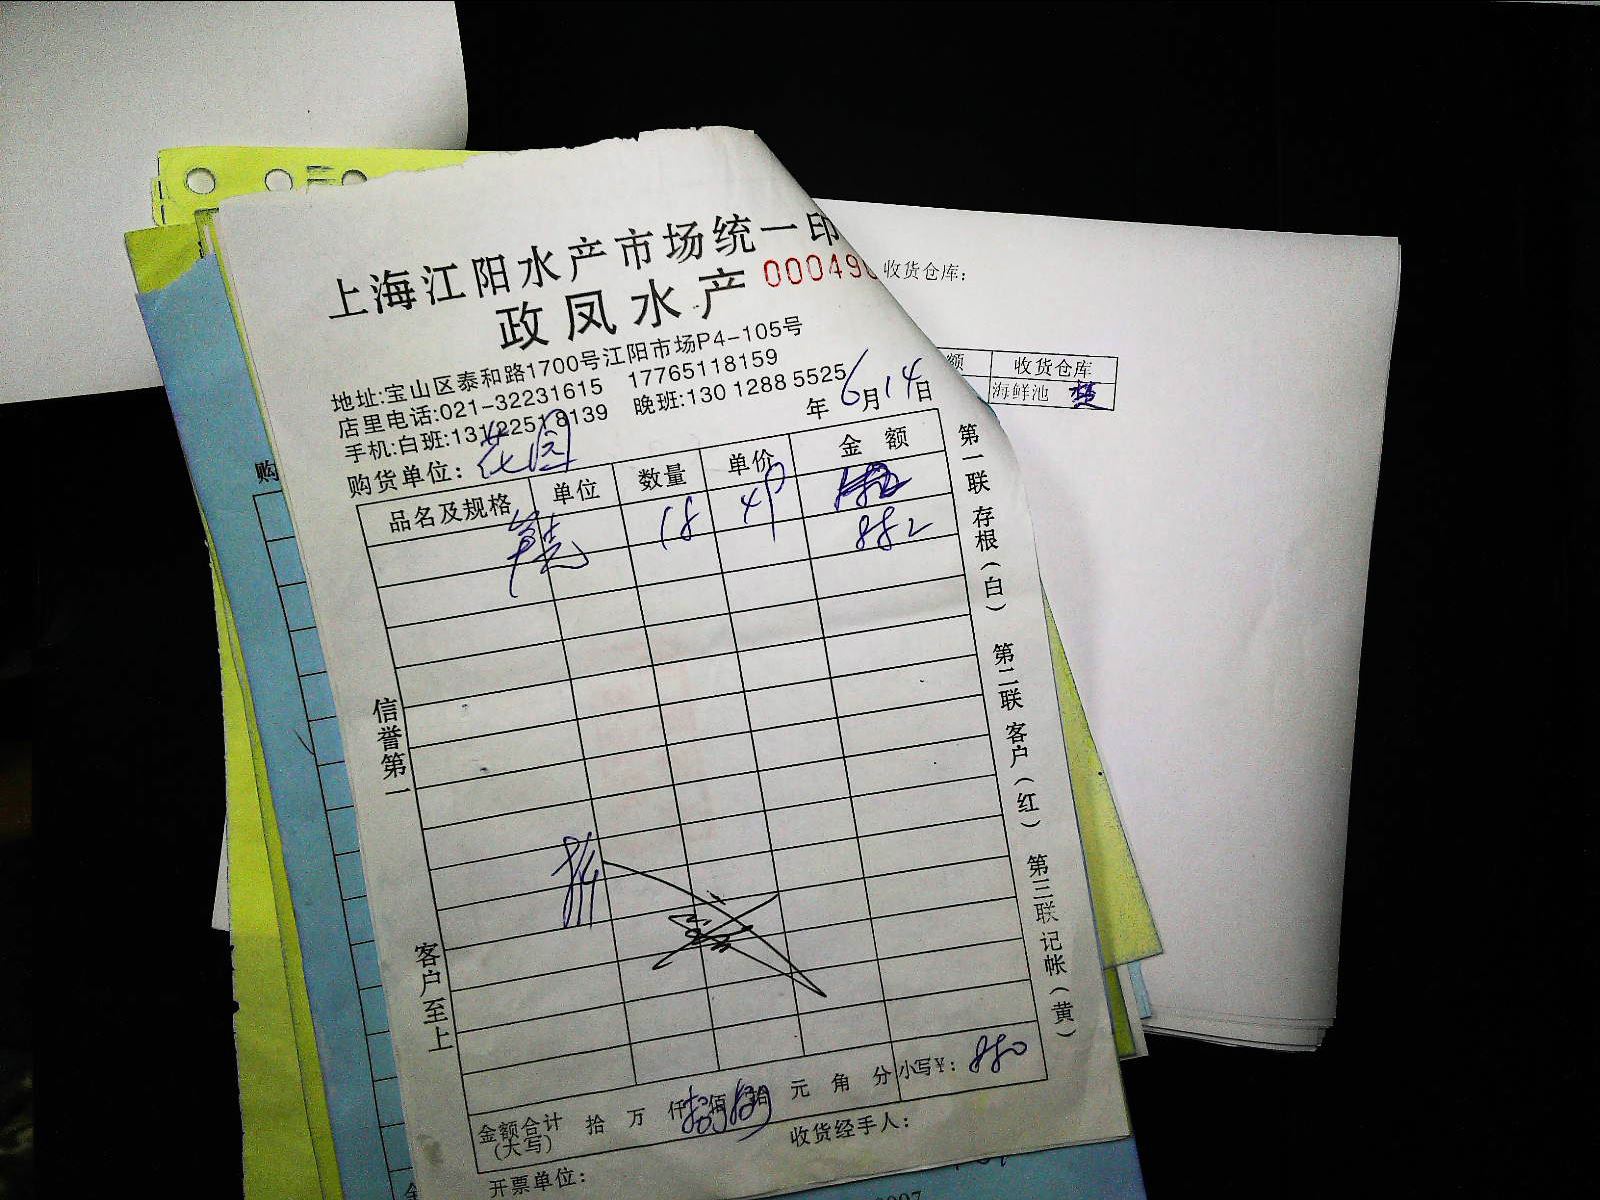 上海江阳水产市场统一印
政凤水产 000490
收货仓库：
地址:宝山区泰和路1700号江阳市场P4-105号
店里电话:021-32231615 17765118159
手机:白班:13122518139 晚班:130 1288 5525
年 6月14日
购货单位：花园
额 收货仓库
海鲜池
购
品名及规格 单位 数量 单价 金额
18 49
882
第一联 存根（白） 第二联 客户（红） 第三联 记帐（黄）
信誉第一 客户至上
金额合计(大写) 拾 万 仟 佰 拾 元 角 分 小写¥：880
收货经手人：
开票单位：